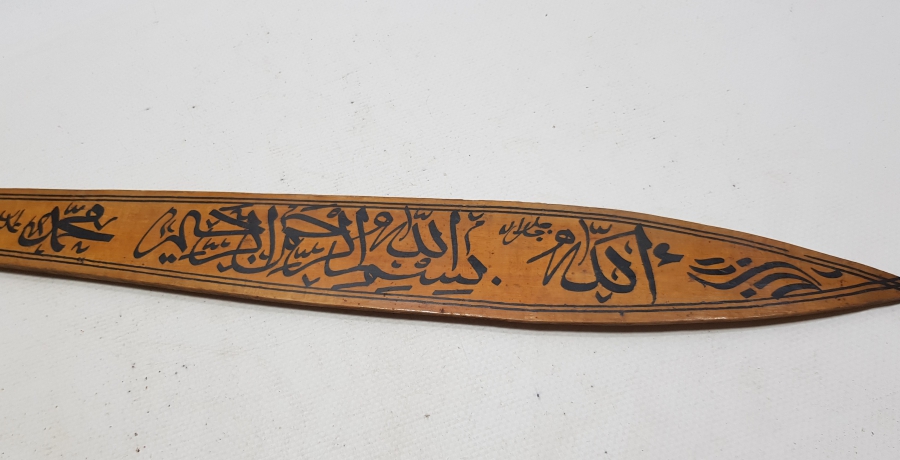 الله جل جلاله بسم الله الرحمن الرحيم محمد